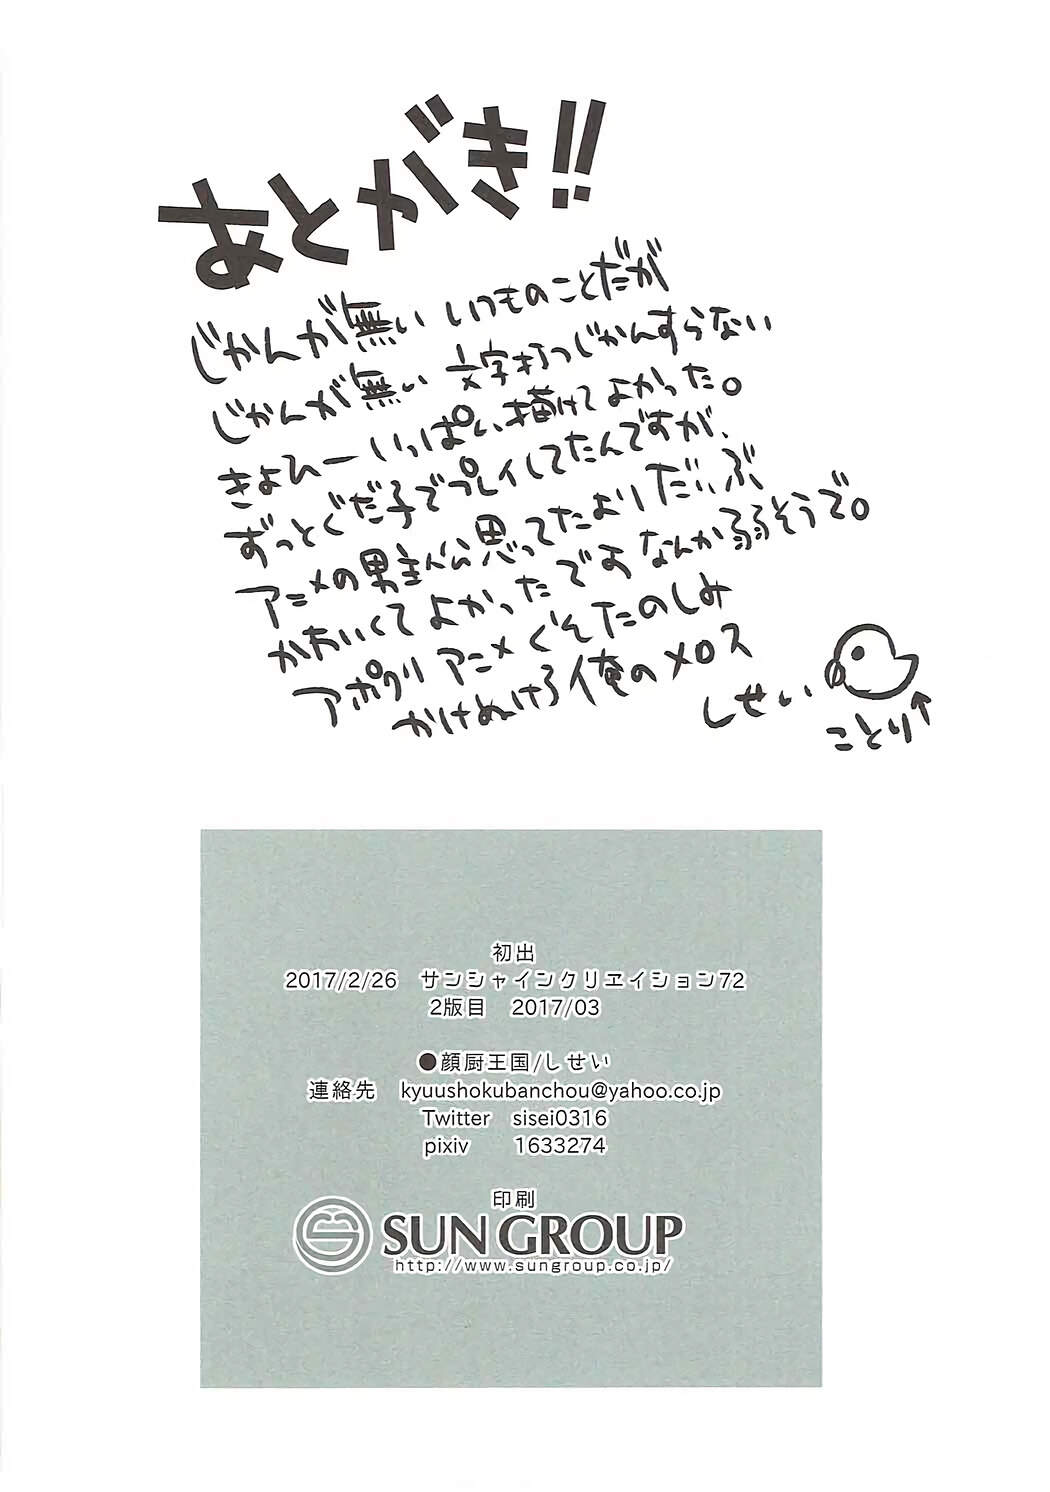 あとがき!!
じかんが無い いつものことだが
じかんが無い 文字打つじかんすらない
きよひー いっぱい描けてよかった。
ずっとぐだ子でプレイしてたんですが、
アニメの男主人公思ってたよりだいぶ
かわいくてよかったですなんか弱そうで。
アポクリアニメぐそたのしみ
かけぬけろ俺のメロス
しせい
ことり↑
初出
2017/2/26 サンシャインクリエイション72
2版目 2017/03
●顔厨王国/しせい
連絡先 kyuushokubanchou@yahoo.co.jp
Twitter sisei0316
pixiv 1633274
印刷
SUN GROUP
http://www.sungroup.co.jp/